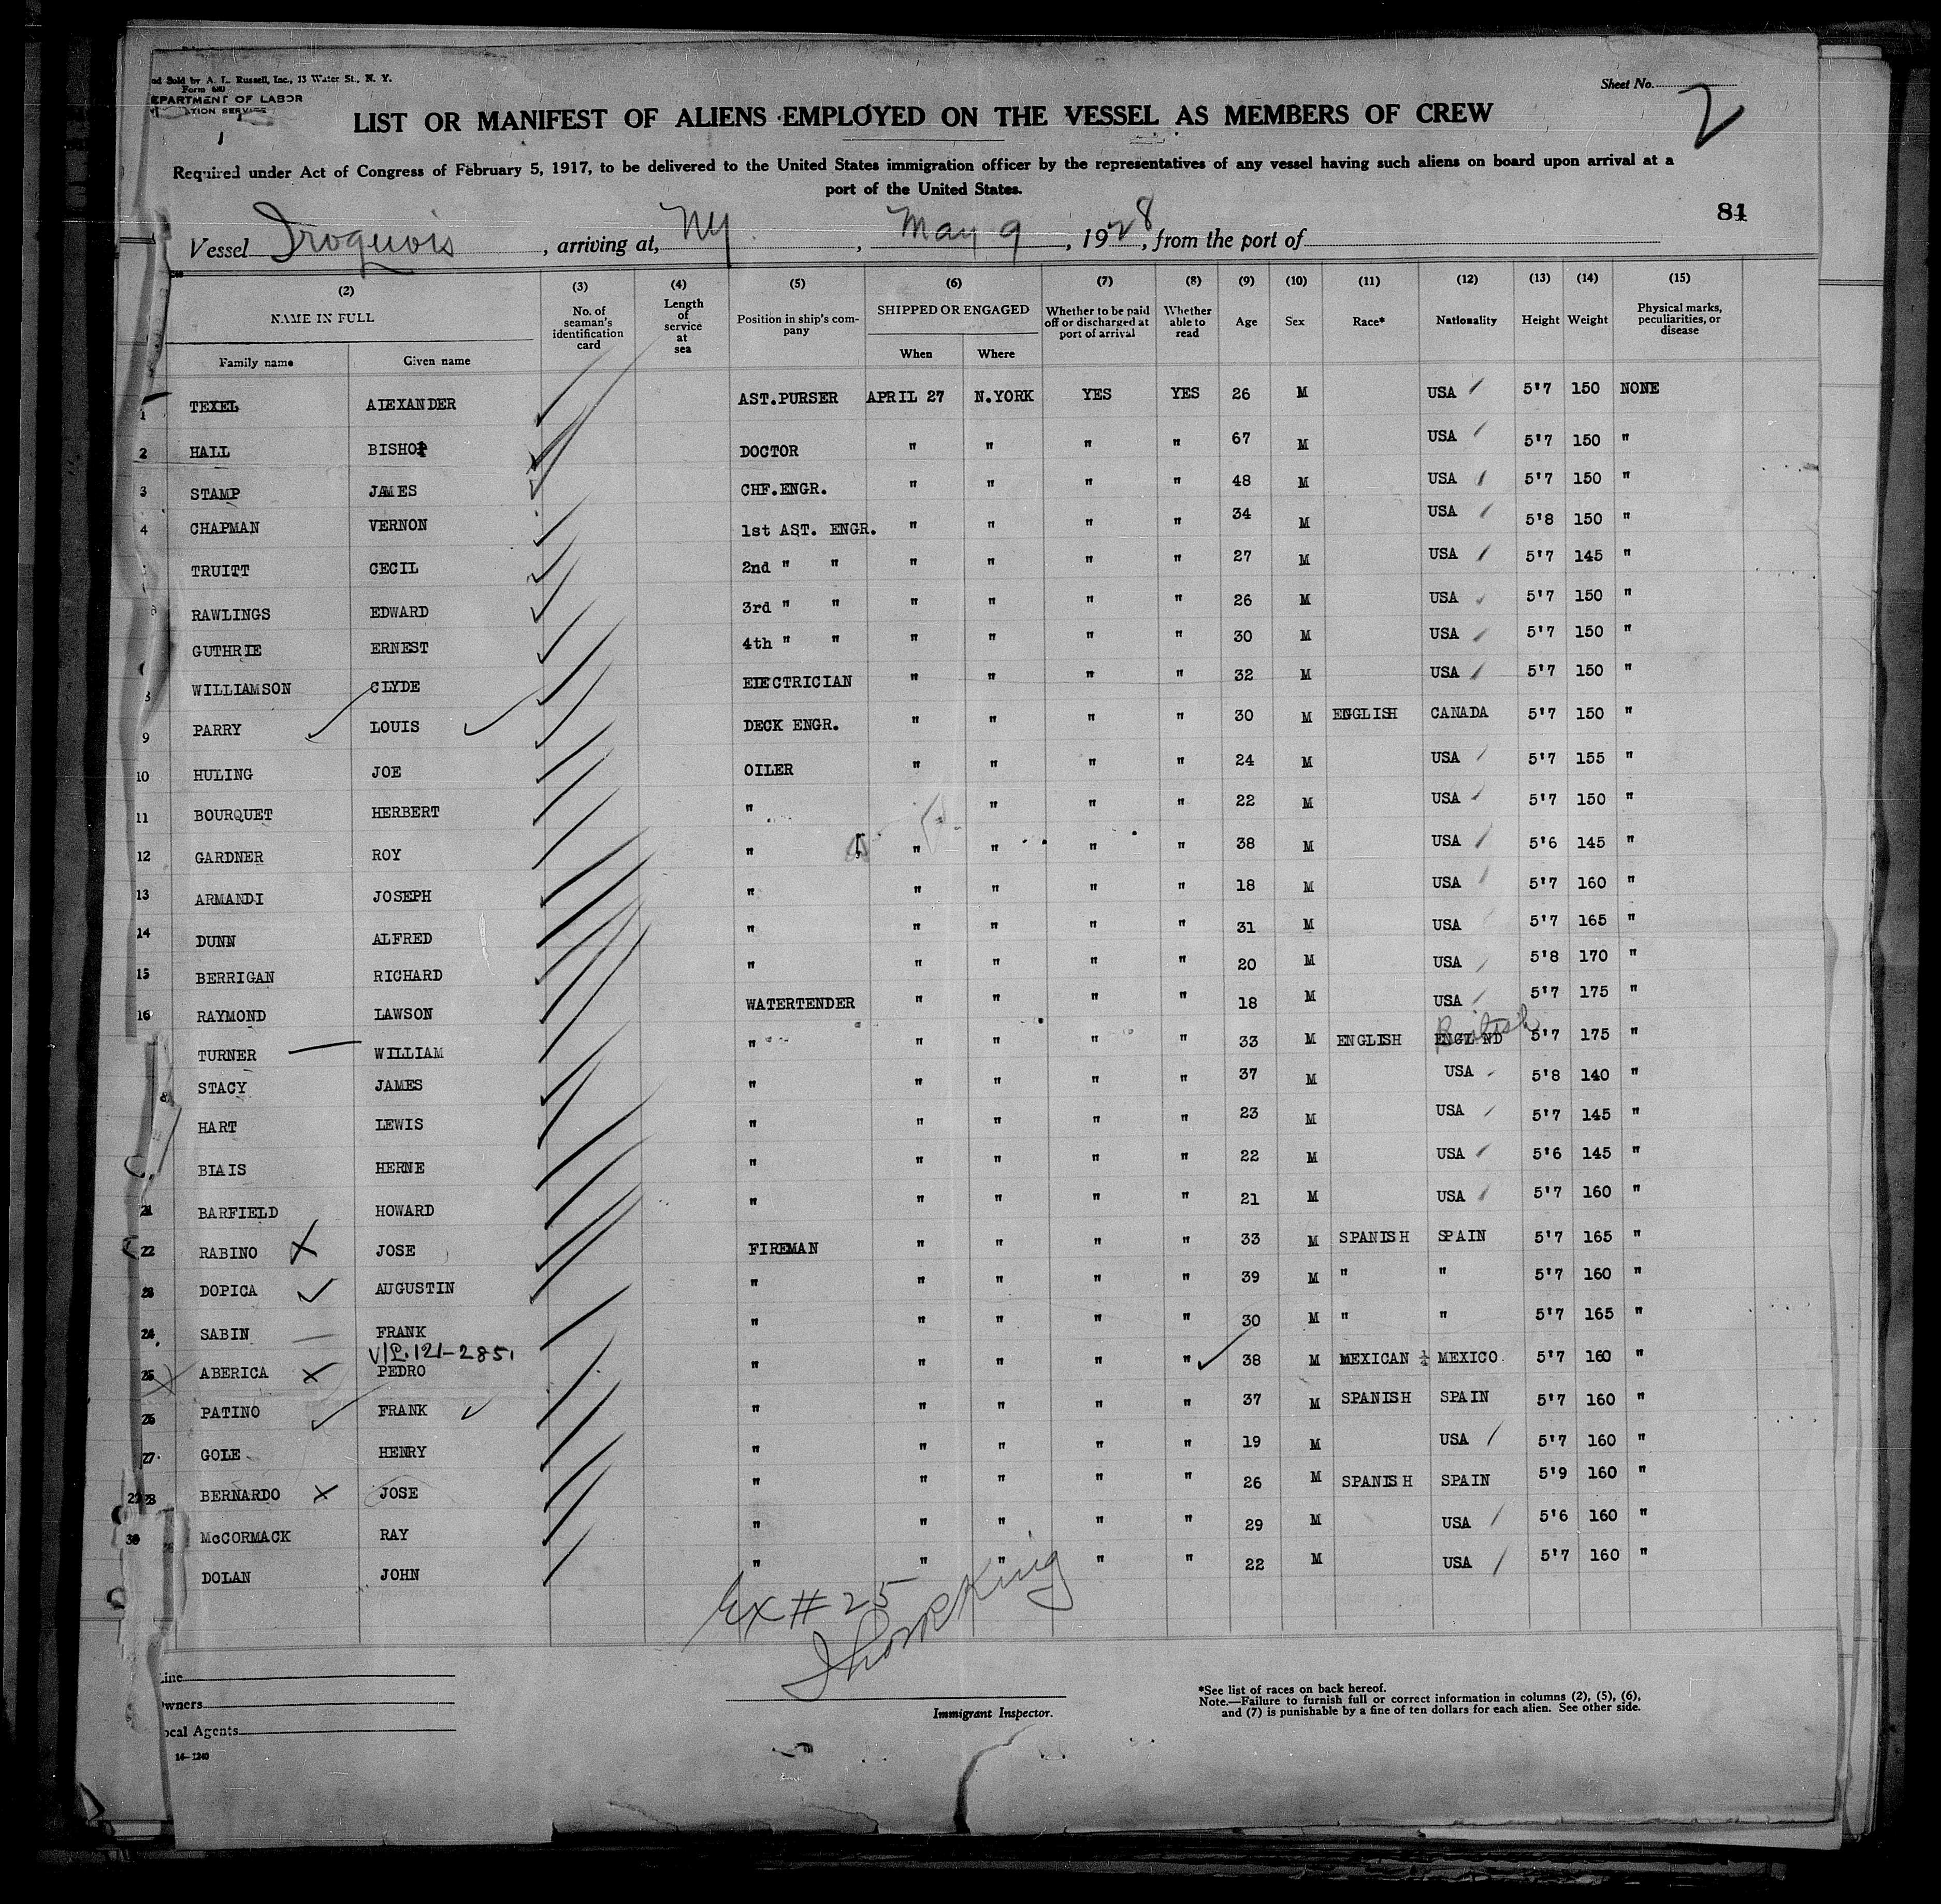 nd Sold by A. L. Russell, Inc., 13 Water St., N. Y.
Form 680
EPARTMENT OF LABOR
ATION SERVICE
Sheet No.
2
LIST OR MANIFEST OF ALIENS EMPLOYED ON THE VESSEL AS MEMBERS OF CREW
Required under Act of Congress of February 5, 1917, to be delivered to the United States immigration officer by the representatives of any vessel having such aliens on board upon arrival at a
port of the United States.
81
Vessel Iroquois, arriving at, NY, May 9, 1928, from the port of
(2) (3) (4) (5) (6) (7) (8) (9) (10) (11) (12) (13) (14) (15)
NAME IN FULL No. of seaman's identification card Length of service at sea Position in ship's company SHIPPED OR ENGAGED Whether to be paid off or discharged at port of arrival Whether able to read Age Sex Race* Nationality Height Weight Physical marks, peculiarities, or disease
Family name Given name When Where
1 TEXEL ALEXANDER AST.PURSER APRIL 27 N.YORK YES YES 26 M USA 5'7 150 NONE
2 HALL BISHOP DOCTOR " " " " 67 M USA 5'7 150 "
3 STAMP JAMES CHF.ENGR. " " " " 48 M USA 5'7 150 "
4 CHAPMAN VERNON 1st AST. ENGR. " " " " 34 M USA 5'8 150 "
TRUITT CECIL 2nd " " " " " " 27 M USA 5'7 145 "
RAWLINGS EDWARD 3rd " " " " " " 26 M USA 5'7 150 "
GUTHRIE ERNEST 4th " " " " " " 30 M USA 5'7 150 "
WILLIAMSON CLYDE ELECTRICIAN " " " " 32 M USA 5'7 150 "
9 PARRY LOUIS DECK ENGR. " " " " 30 M ENGLISH CANADA 5'7 150 "
10 HULING JOE OILER " " " " 24 M USA 5'7 155 "
11 BOURQUET HERBERT " " " " 22 M USA 5'7 150 "
12 GARDNER ROY " " " " " 38 M USA 5'6 145 "
13 ARMANDI JOSEPH " " " " " 18 M USA 5'7 160 "
14 DUNN ALFRED " " " " " 31 M USA 5'7 165 "
15 BERRIGAN RICHARD " " " " " 20 M USA 5'8 170 "
16 RAYMOND LAWSON WATERTENDER " " " " 18 M USA 5'7 175 "
British
TURNER WILLIAM " " " " " 33 M ENGLISH ENGL ND 5'7 175 "
STACY JAMES " " " " " 37 M USA 5'8 140 "
HART LEWIS " " " " " 23 M USA 5'7 145 "
BLAIS HERNE " " " " " 22 M USA 5'6 145 "
21 BARFIELD HOWARD " " " " " 21 M USA 5'7 160 "
22 RABINO JOSE FIREMAN " " " " 33 M SPANISH SPAIN 5'7 165 "
23 DOPICA AUGUSTIN " " " " " 39 M " " 5'7 160 "
24 SABIN FRANK " " " " " 30 M " " 5'7 165 "
V/P. 121-285.
25 ABERICA PEDRO " " " " " 38 M MEXICAN MEXICO 5'7 160 "
26 PATINO FRANK " " " " " 37 M SPANISH SPAIN 5'7 160 "
27 GOLE HENRY " " " " " 19 M USA 5'7 160 "
28 BERNARDO JOSE " " " " " 26 M SPANISH SPAIN 5'9 160 "
30 McCORMACK RAY " " " " " 29 M USA 5'6 160 "
DOLAN JOHN " " " " " 22 M USA 5'7 160 "
Ex # 25
ine
wners
ocal Agents
14-1240
Immigrant Inspector.
*See list of races on back hereof.
Note.—Failure to furnish full or correct information in columns (2), (5), (6),
and (7) is punishable by a fine of ten dollars for each alien. See other side.